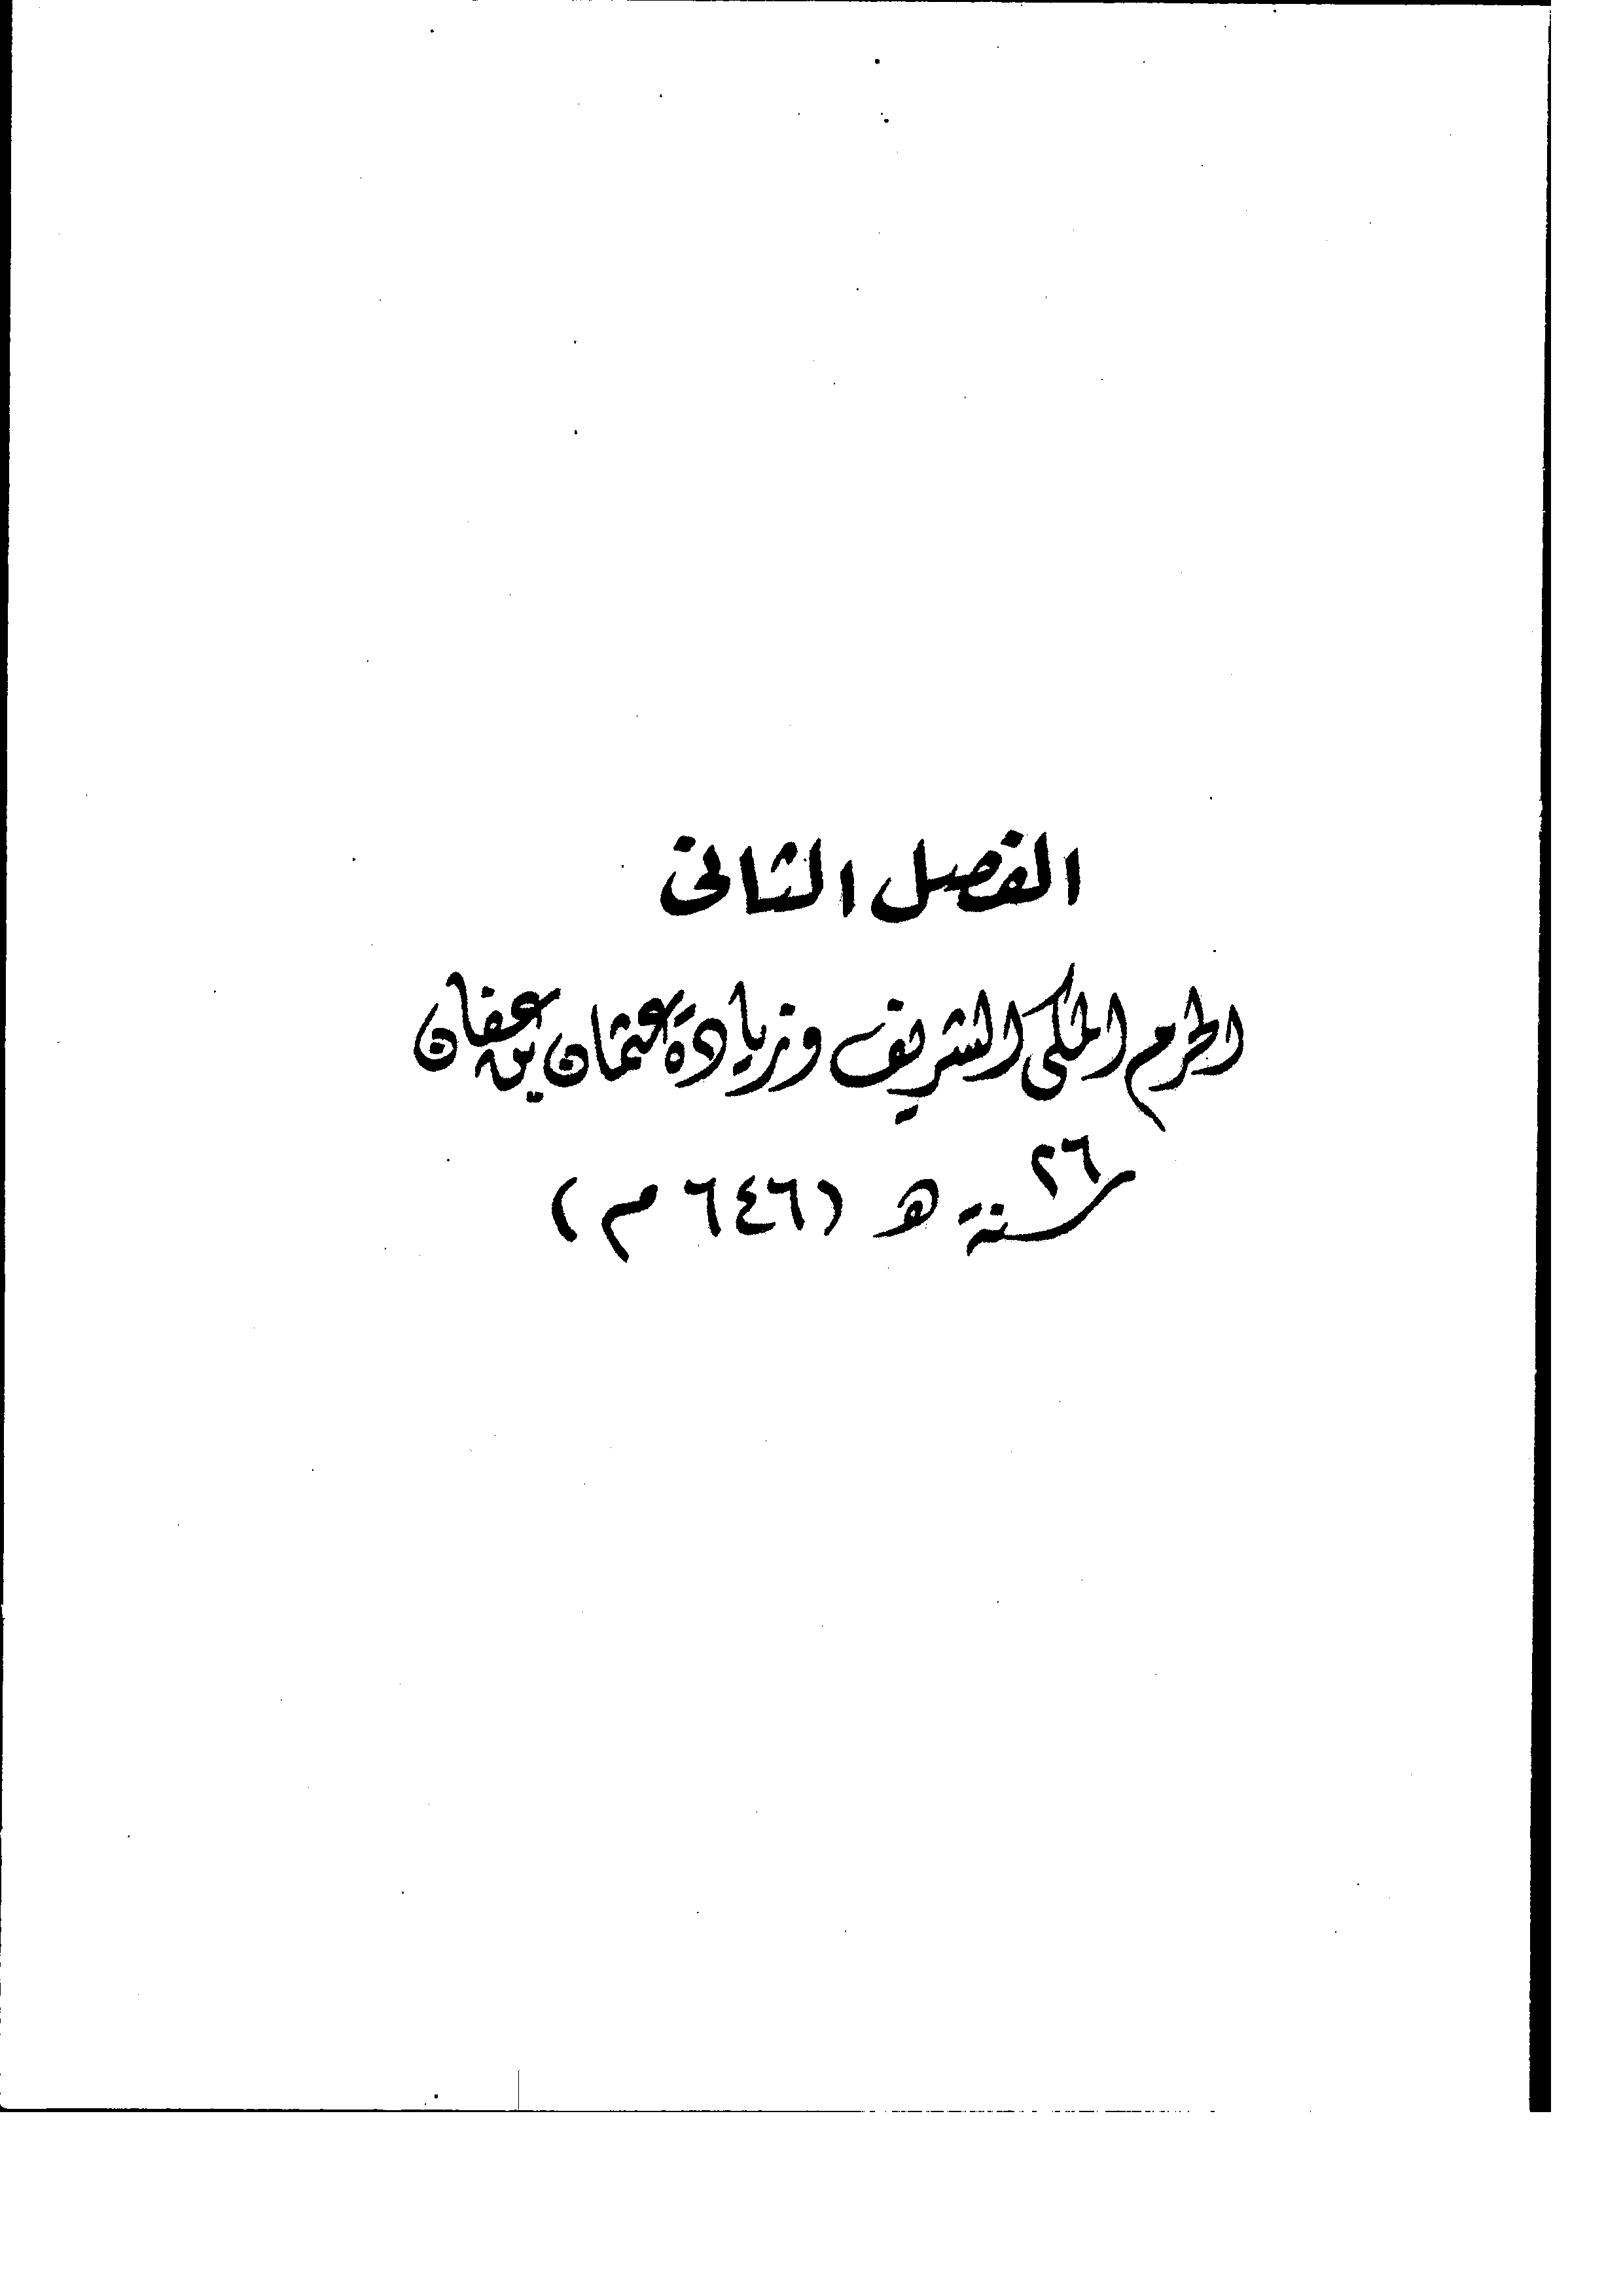 الفصل الثانى
الحرم المكى الشريف وزيادة عثمان بن عفان
سنة ٢٦ هـ (٦٤٦ م)